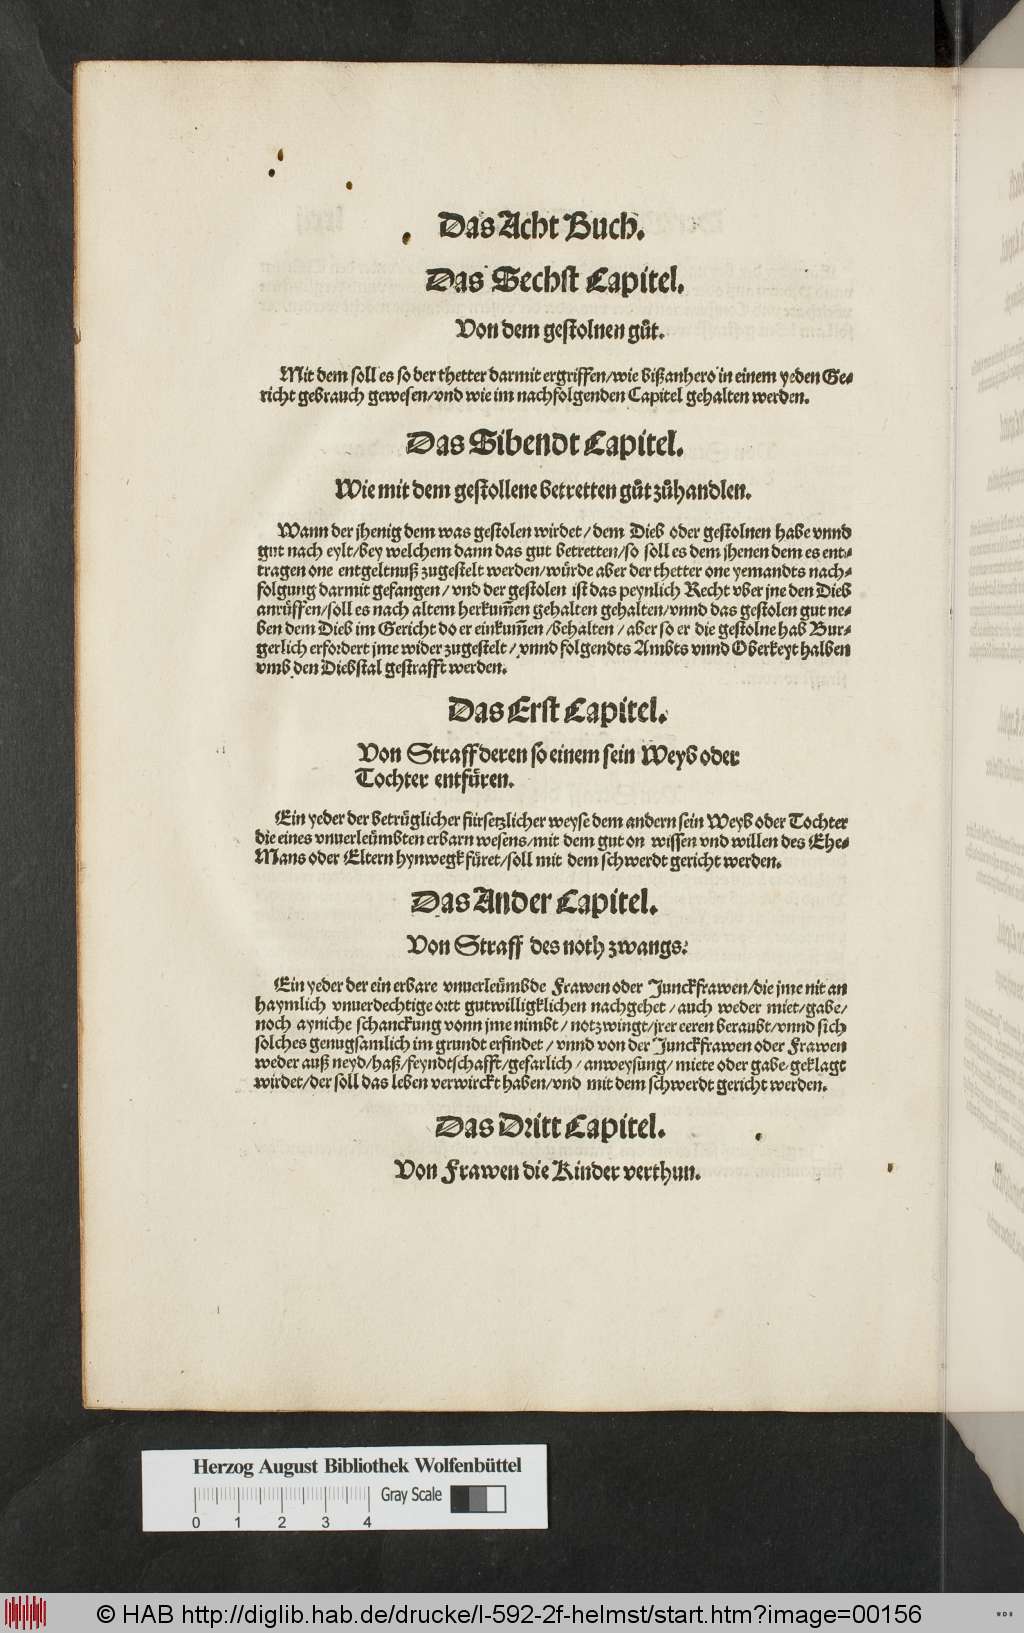 Das Acht Buch.
Das Sechst Capitel.
Von dem gestolnen gůt.
Mit dem soll es so der thetter darmit ergriffen/wie bißanhero in einem yeden Ge-
richt gebrauch gewesen/vnd wie im nachfolgenden Capitel gehalten werden.
Das Sibendt Capitel.
Wie mit dem gestollene betretten gůt zůhandlen.
Wann der jhenig dem was gestolen wirdet/dem Dieb oder gestolnen habe vnnd
gut nach eylt/bey welchem dann das gut betretten/so soll es dem jhenen dem es ent-
tragen one entgeltnuß zugestelt werden/wůrde aber der thetter one yemandts nach-
folgung darmit gefangen/vnd der gestolen ist das peynlich Recht vber jne den Dieb
anrůffen/soll es nach altem herkum̃en gehalten gehalten/vnnd das gestolen gut ne-
ben dem Dieb im Gericht do er einkum̃en/behalten/aber so er die gestolne hab Bur-
gerlich erfordert jme wider zugestelt/vnnd folgendts Ambts vnnd Oberkeyt halben
vmb den Diebstal gestrafft werden.
Das Erst Capitel.
Von Straff deren so einem sein Weyb oder
Tochter entfüren.
Ein yeder der betrüglicher fürsetzlicher weyse dem andern sein Weyb oder Tochter
die eines vnuerleümbten erbarn wesens/mit dem gut on wissen vnd willen des Ehe-
Mans oder Eltern hynwegk füret/soll mit dem schwerdt gericht werden.
Das Ander Capitel.
Von Straff des noth zwangs.
Ein yeder der ein erbare vnuerleümbde Frawen oder Junckfrawen/die jme nit an
haymlich vnuerdechtige ortt gutwilligklichen nachgehet/auch weder miet/gabe/
noch ayniche schanckung vonn jme nimbt/notzwingt/jrer eeren beraubt/vnnd sich
solches genugsamlich im grundt erfindet/vnnd von der Junckfrawen oder Frawen
weder auß neyd/haß/feyndtschafft/gefarlich/anweysung/miete oder gabe/geklagt
wirdet/der soll das leben verwirckt haben/vnd mit dem schwerdt gericht werden.
Das Dritt Capitel.
Von Frawen die Kinder verthun.
Herzog August Bibliothek Wolfenbüttel
Gray Scale
0 1 2 3 4
© HAB http://diglib.hab.de/drucke/l-592-2f-helmst/start.htm?image=00156